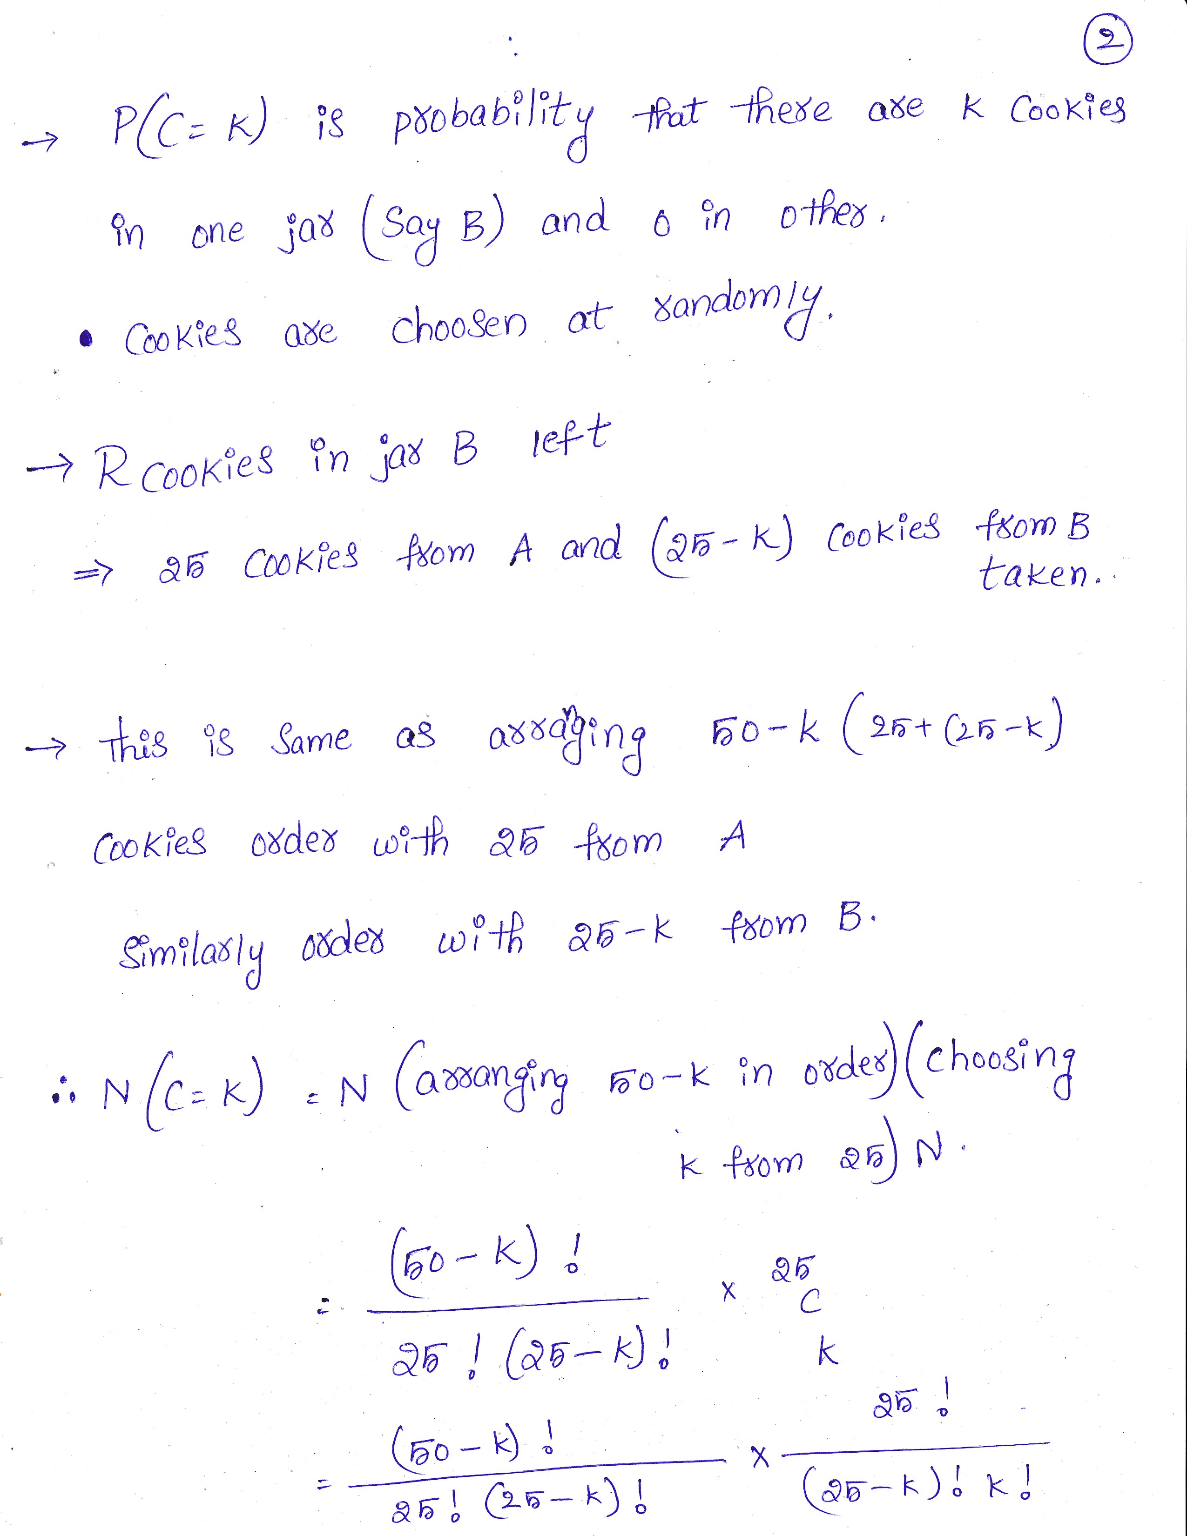 2
→ P(C=K) is probability that there are K Cookies
in one jar (Say B) and 0 in other.
• Cookies are choosen at randomly.
→ R cookies in jar B left
⇒ 25 Cookies from A and (25-K) Cookies from B
taken.
→ this is Same as arranging 50-k (25+(25-k)
Cookies order with 25 from A
Similarly order with 25-k from B.
∴ N(C=K) = N (arranging 50-k in order)(choosing
k from 25) N.
= (50-k)! / 25! (25-k)! x 25 C k
= (50-k)! / 25! (25-k)! x 25! / (25-k)! k!